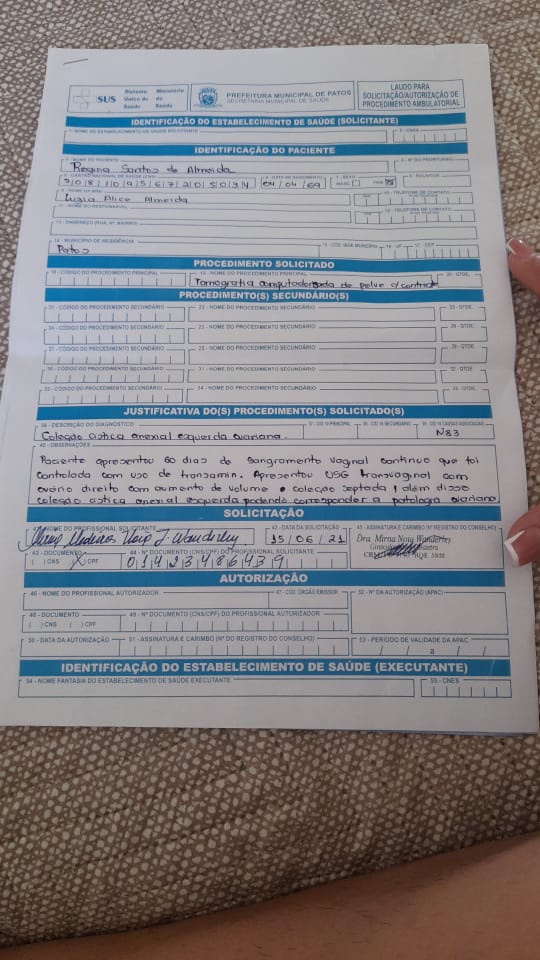 SUS Sistema Único de Saúde Ministério da Saúde
PREFEITURA MUNICIPAL DE PATOS
SECRETARIA MUNICIPAL DE SAÚDE
LAUDO PARA SOLICITAÇÃO/AUTORIZAÇÃO DE PROCEDIMENTO AMBULATORIAL
IDENTIFICAÇÃO DO ESTABELECIMENTO DE SAÚDE (SOLICITANTE)
1 - NOME DO ESTABELECIMENTO DE SAÚDE SOLICITANTE 2 - CNES
IDENTIFICAÇÃO DO PACIENTE
3 - NOME DO PACIENTE 4 - Nº DO PRONTUÁRIO
Regina Santos de Almeida
5 - CARTÃO NACIONAL DE SAÚDE (CNS) 6 - DATA DE NASCIMENTO 7 - SEXO 8 - RAÇA/COR
04/04/69 MASC. FEM.
9 - NOME DA MÃE 10 - TELEFONE DE CONTATO
Luzia Alice Almeida
11 - NOME DO RESPONSÁVEL 12 - TELEFONE DE CONTATO
13 - ENDEREÇO (RUA, Nº, BAIRRO)
14 - MUNICÍPIO DE RESIDÊNCIA 15 - CÓD. IBGE MUNICÍPIO 16 - UF 17 - CEP
Patos
PROCEDIMENTO SOLICITADO
18 - CÓDIGO DO PROCEDIMENTO PRINCIPAL 19 - NOME DO PROCEDIMENTO PRINCIPAL 20 - QTDE.
Tomografia computadorizada de pelve c/ contraste
PROCEDIMENTO(S) SECUNDÁRIO(S)
21 - CÓDIGO DO PROCEDIMENTO SECUNDÁRIO 22 - NOME DO PROCEDIMENTO SECUNDÁRIO 23 - QTDE.
24 - CÓDIGO DO PROCEDIMENTO SECUNDÁRIO 25 - NOME DO PROCEDIMENTO SECUNDÁRIO 26 - QTDE.
27 - CÓDIGO DO PROCEDIMENTO SECUNDÁRIO 28 - NOME DO PROCEDIMENTO SECUNDÁRIO 29 - QTDE.
30 - CÓDIGO DO PROCEDIMENTO SECUNDÁRIO 31 - NOME DO PROCEDIMENTO SECUNDÁRIO 32 - QTDE.
33 - CÓDIGO DO PROCEDIMENTO SECUNDÁRIO 34 - NOME DO PROCEDIMENTO SECUNDÁRIO 35 - QTDE.
JUSTIFICATIVA DO(S) PROCEDIMENTO(S) SOLICITADO(S)
36 - DESCRIÇÃO DO DIAGNÓSTICO 37 - CID 10 PRINCIPAL 38 - CID 10 SECUNDÁRIO 39 - CID 10 CAUSAS ASSOCIADAS
Coleção cística anexial esquerda ovariana. N83
40 - OBSERVAÇÕES
Paciente apresentou 60 dias de sangramento vaginal contínuo que foi
controlada com uso de transamin. Apresentou USG transvaginal com
ovário direito com aumento de volume e coleção septada, além disso
coleção cística anexial esquerda podendo corresponder a patologia ovariana.
SOLICITAÇÃO
41 - NOME DO PROFISSIONAL SOLICITANTE 42 - DATA DA SOLICITAÇÃO 43 - ASSINATURA E CARIMBO (Nº REGISTRO DO CONSELHO)
15/06/21 Dra. Mirna Wanderley
43 - DOCUMENTO 44 - Nº DOCUMENTO (CNS/CPF) DO PROFISSIONAL SOLICITANTE
( ) CNS (X) CPF 01423486439
AUTORIZAÇÃO
46 - NOME DO PROFISSIONAL AUTORIZADOR 47 - COD. ÓRGÃO EMISSOR 52 - Nº DA AUTORIZAÇÃO (APAC)
48 - DOCUMENTO 49 - Nº DOCUMENTO (CNS/CPF) DO PROFISSIONAL AUTORIZADOR
( ) CNS ( ) CPF
50 - DATA DA AUTORIZAÇÃO 51 - ASSINATURA E CARIMBO (Nº DO REGISTRO DO CONSELHO) 53 - PERÍODO DE VALIDADE DA APAC
/ / a / /
IDENTIFICAÇÃO DO ESTABELECIMENTO DE SAÚDE (EXECUTANTE)
54 - NOME FANTASIA DO ESTABELECIMENTO DE SAÚDE EXECUTANTE 55 - CNES